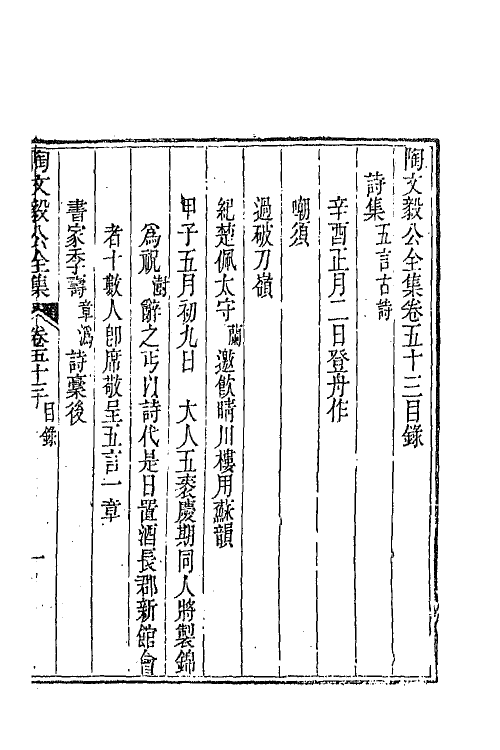 陶文毅公全集卷五十三目錄
詩集五言古詩
辛酉正月二日登舟作
嘲須
過破刀嶺
紀楚佩太守蘭邀飲晴川樓用蘇韻
甲子五月初九日 大人五袠慶期同人將製錦
為祝澍辭之丐以詩代是日置酒長郡新館會
者十數人卽席敬呈五言一章
書家季壽章溈詩稾後
陶文毅公全集 卷五十三 目錄 一